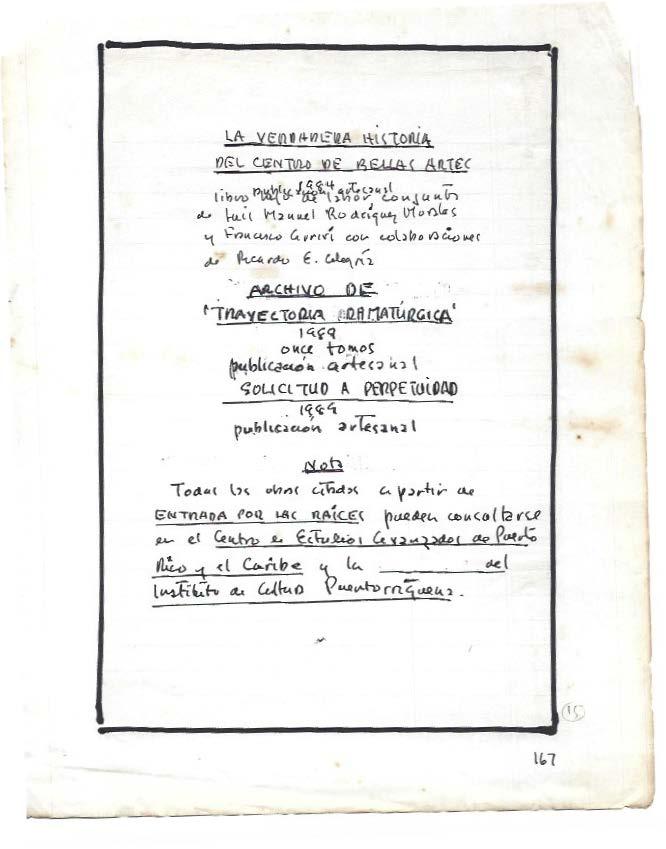 LA VERDADERA HISTORIA
DEL CENTRO DE BELLAS ARTES
1984
publicación artesanal
libro de labor conjunta
de Luis Manuel Rodríguez Morales
y Francisco Arriví con colaboraciones
de Ricardo E. Alegría
ARCHIVO DE
"TRAYECTORIA DRAMATÚRGICA"
1989
once tomos
publicación artesanal
SOLICITUD A PERPETUIDAD
1989
publicación artesanal
Nota
Todas las obras citadas a partir de
ENTRADA POR LAS RAÍCES pueden consultarse
en el Centro de Estudios Avanzados de Puerto
Rico y el Caribe y la ________ del
Instituto de Cultura Puertorriqueña.
15
167